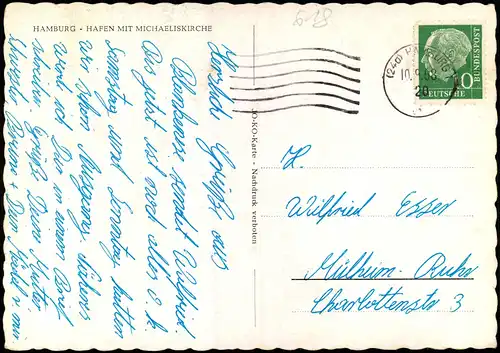 HAMBURG - HAFEN MIT MICHAELISKIRCHE
Herzliche Grüße aus
sendet Wilfried
Bis jetzt ist noch alles o.k.
Samstag und Sonntag hatten
wir schon Ausgang. Näheres
werde ich Dir in einem Brief
schreiben. Grüße Deine Mutter,
KO-KO-Karte - Nachdruck verboten
(24a) HAMBURG
20
DEUTSCHE
BUNDESPOST
H.
Wilfried Esser
Mülheim-Ruhr
Charlottenstr 3